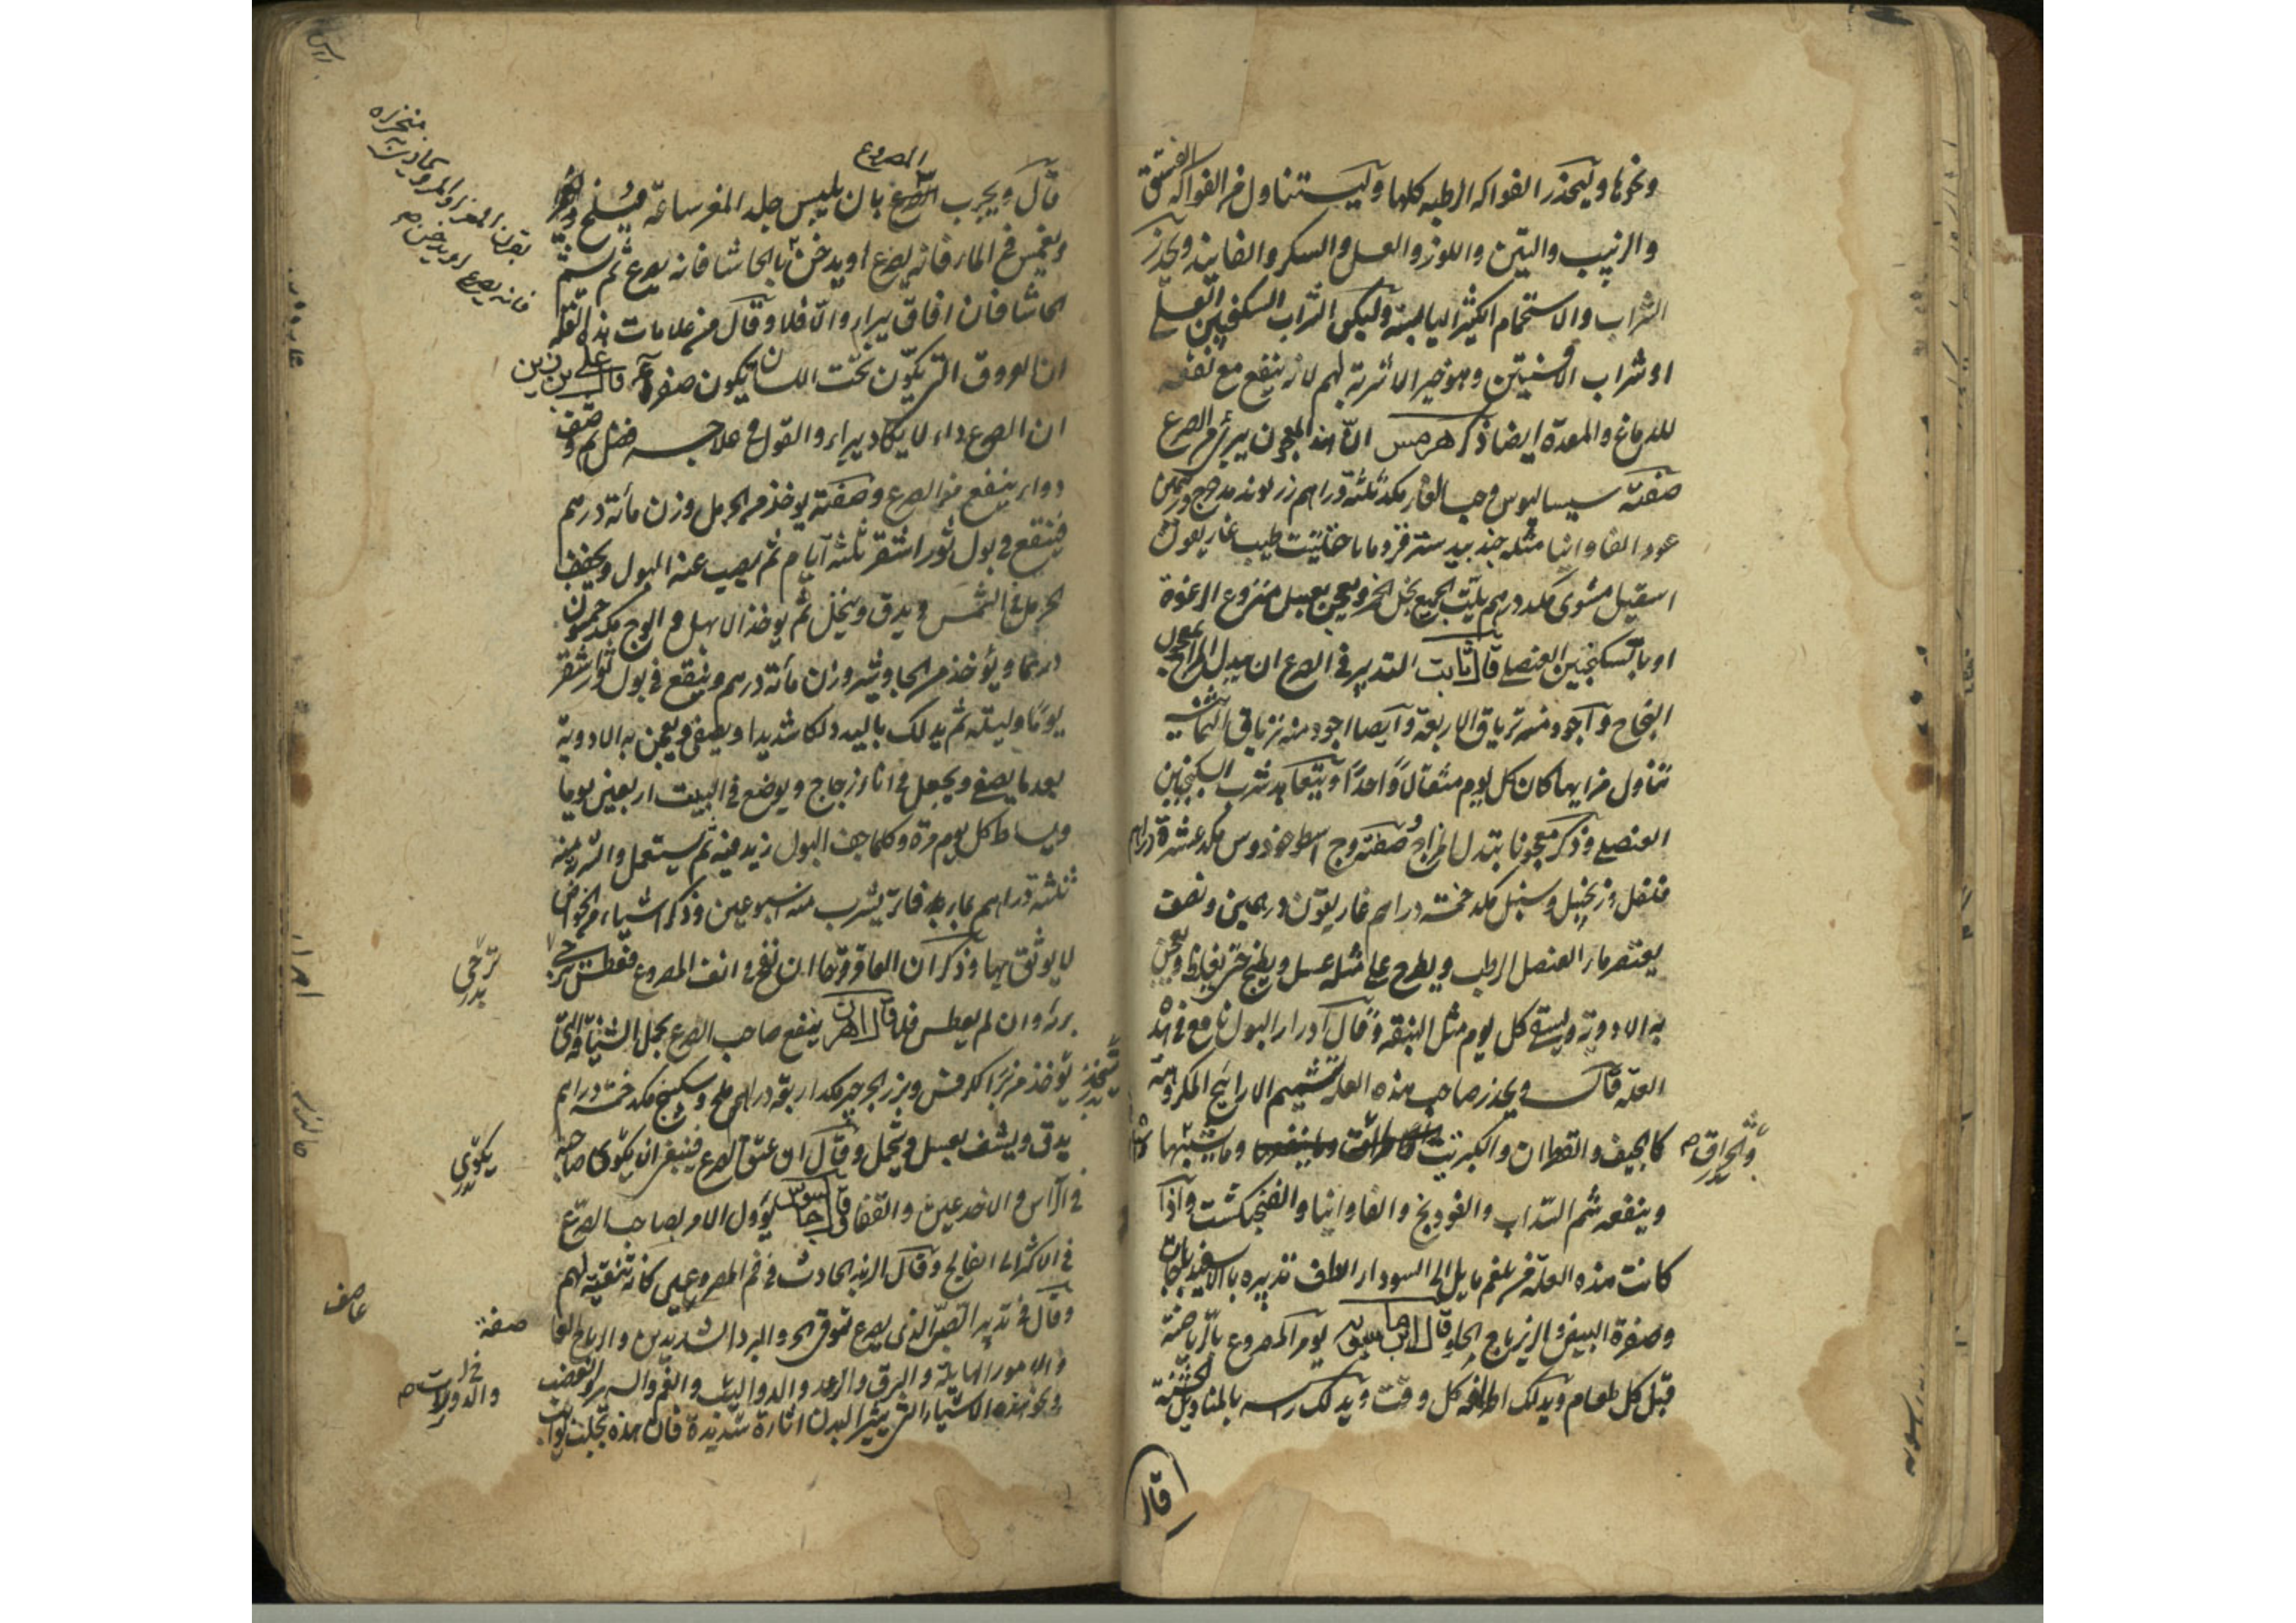 ونحوها وليحذر الفواكه الرطبه كلها وليستناول من الفواكه الفستق
والزبيب والتين واللوز والعسل والسكر والفانيد ويحذر
الشراب والاستحمام الكثير اليابسة وليكن الشراب السكنجبين العنصلى
او شراب الافسنتين وهو خير الاشربة لهم لانه ينفع مع نفعه
للدماغ والمعدة ايضا ذكر هرمس ان هذا المعجون يبرئ من الصرع
صفته سيساليوس وحب الغار مكد ثلثة دراهم زراوند مدحرج
عود الفاوانيا مثله جندبيدستر قردمانا حلتيت طيب غاريقون
اسقيل مشوى مكد درهم يلت الجميع بخل الخمر ويعجن بعسل منزوع الرغوة
او بالسكنجبين العنصلى قال ثابت التدبير فى الصرع ان يبدل المزاج بمعجون
النجاح واجود منه ترياق الاربعة وايضا اجود منه ترياق الثمانية
تناول من ايها كان كل يوم مثقالا واحدا ويتعاهد شرب السكنجبين
العنصلى وذكر معجونا يبدل المزاج صفته وج اسطوخودوس مكد عشرة دراهم
فلفل وزنجبيل وسنبل مكد خمسة دراهم غاريقون درهمين ونصف
يعتصر ماء العنصل الرطب ويطرح على مثله عسل ويطبخ حتى يغلظ ويعجن
به الادوية ويسقى كل يوم مثل البندقه وقال ادرار البول نافع فى هذه
العلة قال ويحذر صاحب هذه العلة تشميم الارايح المكروهة
كالجيف والقطران والكبريت وما يشبهها
والحراق
وينفعه شم السذاب والفودنج والفاوانيا والفنجنكشت واذا
كانت هذه العلة من بلغم مايل الى السوداء الطف تدبيره بالاسفيدباجات
وصفرة البيض والزيرباج الحلو قال ابن ماسويه يومر المصروع بالرياضة
قبل كل طعام ويدلك اطرافه كل وقت ويدلك راسه بالمناديل الخشنة
قال
المصروع
قال ويجرب بان يلبس جلد المعز ساعة يسلخ
ويغمس فى الماء فانه يصرع او يدخن بالحاشا فانه يصرع ثم يشم
الحاشا فان افاق يبراء والا فلا وقال من علامات هذه العلة
ان العروق التى يكون تحت اللسان يكون صفراء قال على بن ربن
ان الصرع داء لا يكاد يبراء والقول فى علاجه فضل ثم وصف
دواء ينفع من الصرع وصفته يوخذ من الحرمل وزن مأئة درهم
فينقع فى بول ثور اشقر ثلثة ايام ثم يصب عنه البول ويجفف
الحرمل فى الشمس ويدق وينخل ثم يوخذ الابهل والوج مكد خمسون
درهما ويؤخذ من الجاوشير وزن مأئة درهم وينقع فى بول ثور اشقر
يوما وليلة ثم يدلك باليد دلكا شديدا ويصفى ويعجن به الادوية
بعد ما يصفى ويجعل فى اناء زجاج ويوضع فى البيت اربعين يوما
ويساط كل يوم مرة وكلما جف البول زيد فيه ثم يستعمل والشربة منه
ثلثة دراهم بماء فاتر يشرب منه اسبوعين وذكر اشياء من الخواص
لا يوثق بها وذكر ان العاقرقرحا ان نفخ فى انف المصروع فعطس رجى
برئه وان لم يعطس فلا قال اهرن ينفع صاحب الصرع بحمل الشيافة التى
يوخذ من بزر الكرفس وبزر الجرجير مكد اربعة دراهم ملح وسكبينج مكد خمسة دراهم
يدق ويشيف بعسل ويتحمل وقال ان عتق الصرع فينبغى ان يكوى صاحبه
فى الراس والاخدعين والقفا قال يؤول الامر بصاحب الصرع
فى الاكثر الى الفالج وقال الزبد الحادث فى فم المصروعين كانه تنقية لهم
وقال فى تدبير الصبى الذى يصرع توقى الحر والبرد الشديدين والرياح
والامور الهايلة والبرق والرعد والدواليب والغم والسهر والغضب
ونحو هذه الاشياء التى يثير البدن اثارة شديدة فان هذه تجلب نوائب
بقرن المعز او المر
فانه يصرع او يدخن
يكوى
صفة